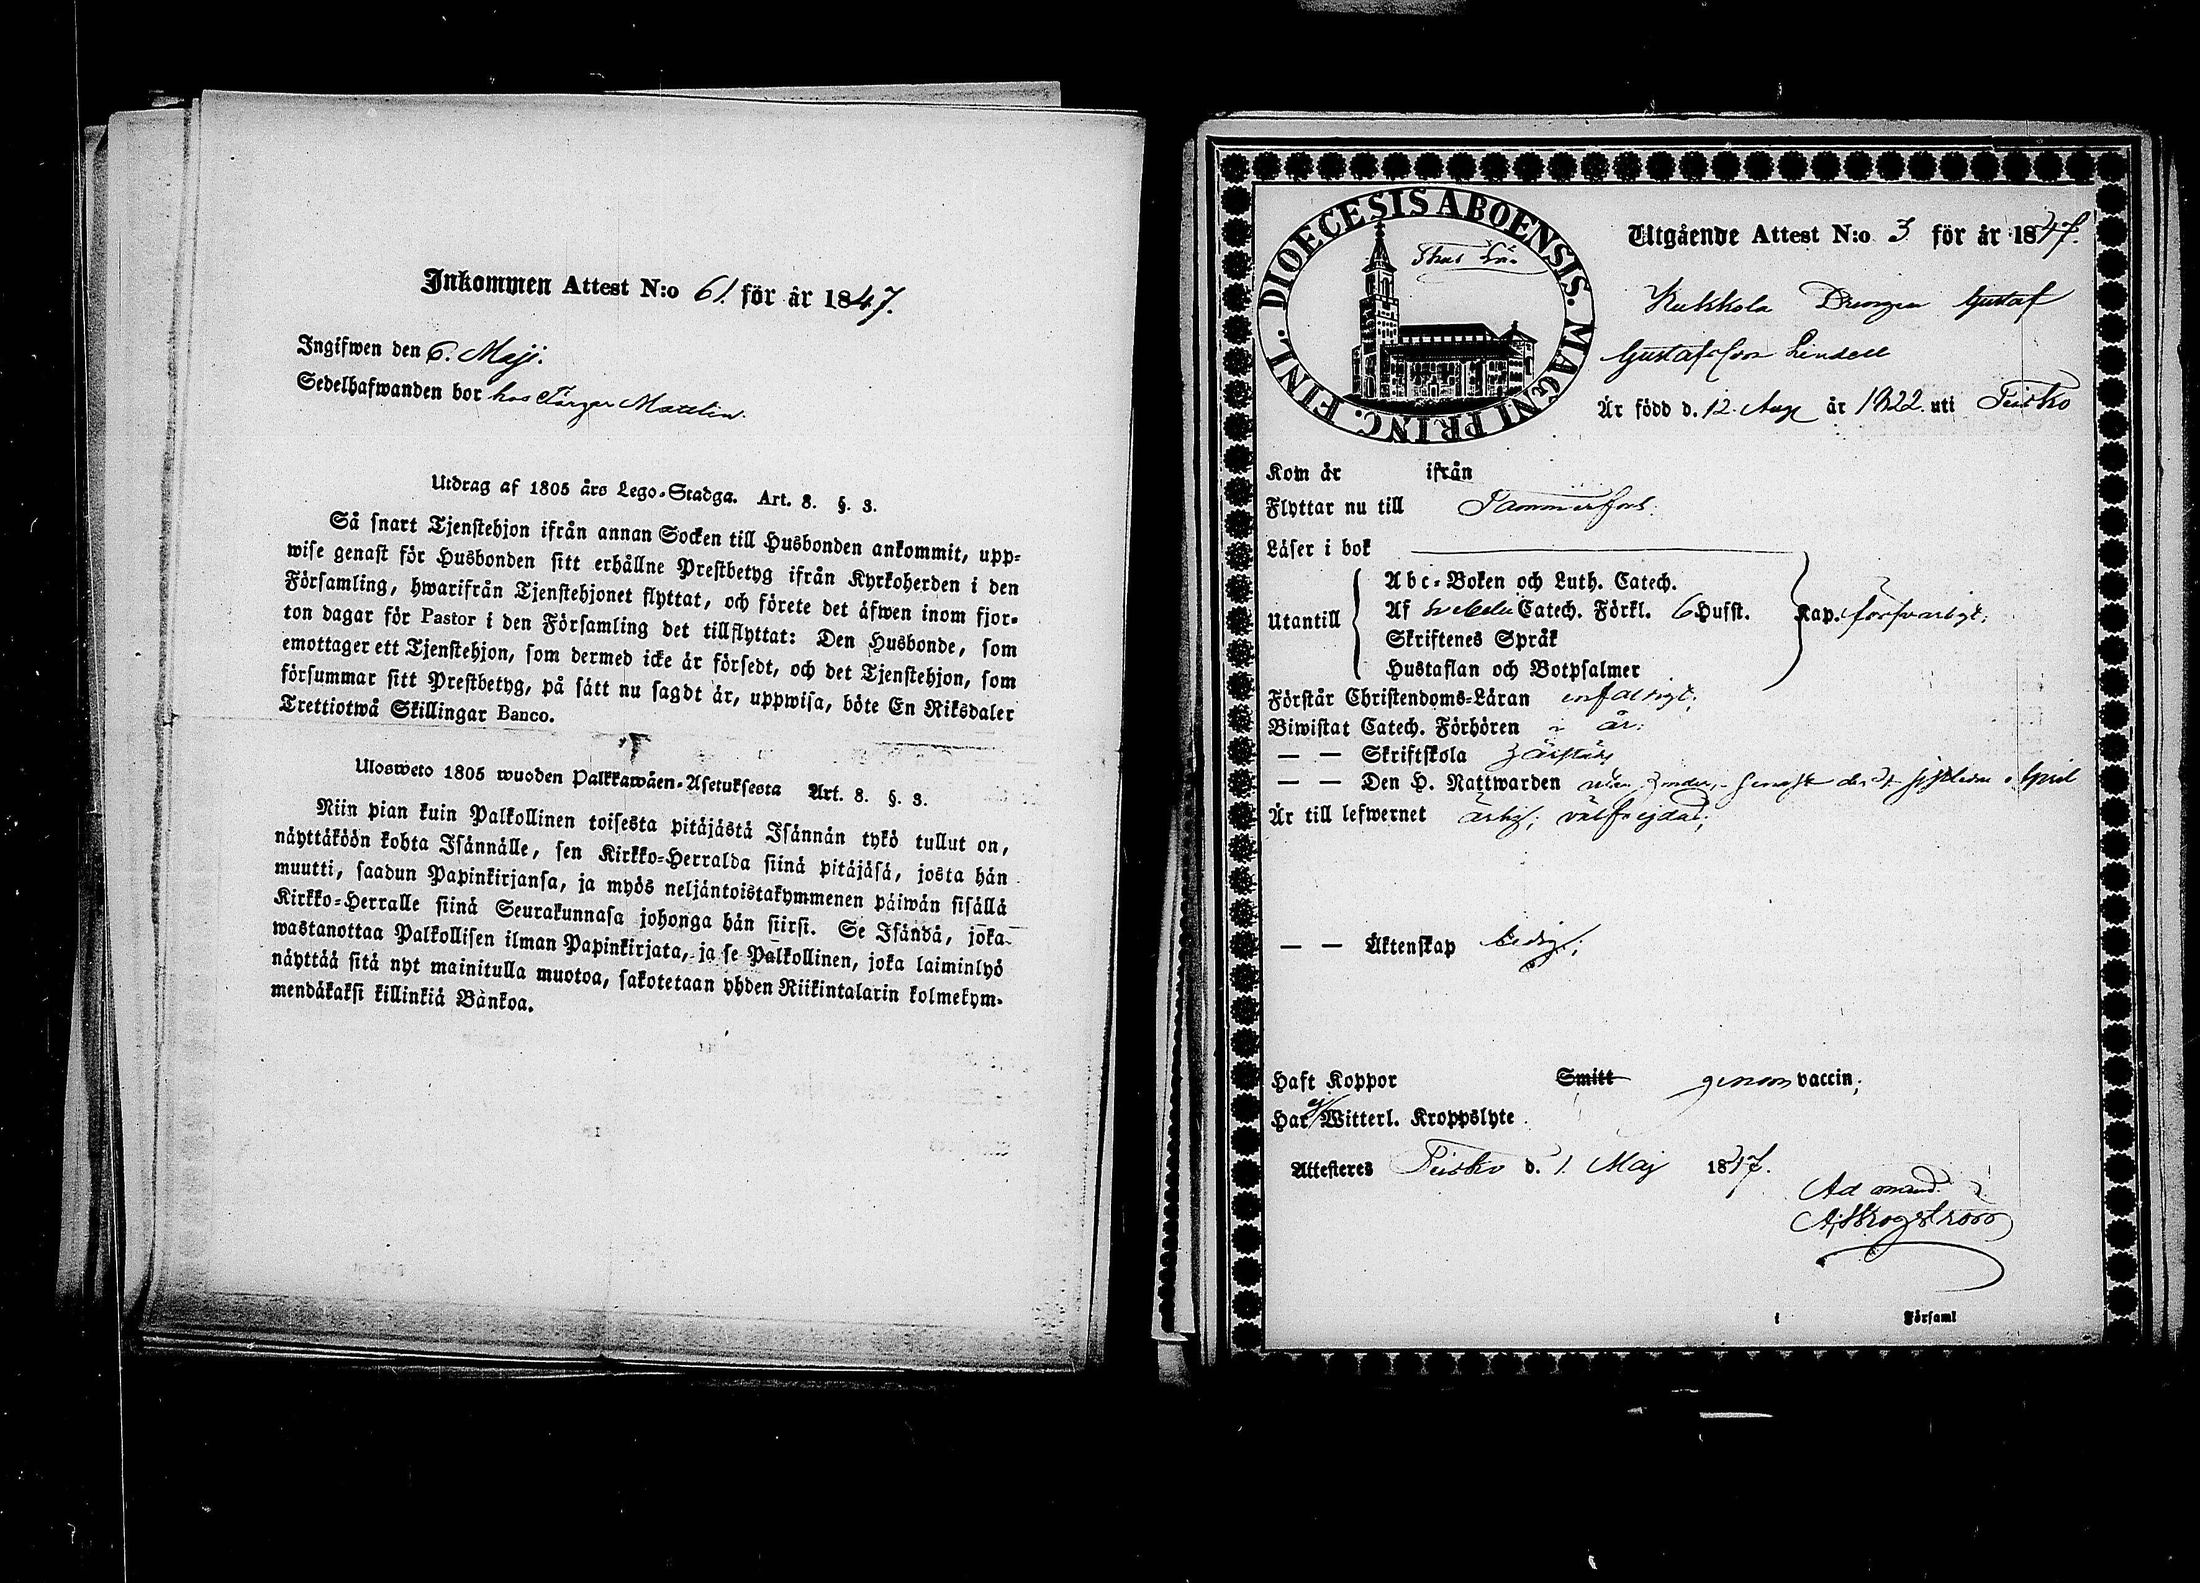 Inkommen Attest N:o 61. för år 1847.
Ingifwen den 6. Maji.
Sedelhafwanden bor hos Färgar Mattelin.
Utdrag af 1805 års Lego-Stadga. Art. 8. §. 3.
Så snart Tjenstehjon ifrån annan Socken till Husbonden ankommit, upp-
wise genast för Husbonden sitt erhållne Prestbetyg ifrån Kyrkoherden i den
Församling, hwarifrån Tjenstehjonet flyttat, och förete det äfwen inom fjor-
ton dagar för Pastor i den Församling det tillflyttat: Den Husbonde, som
emottager ett Tjenstehjon, som dermed icke är försedt, och det Tjenstehjon, som
försummar sitt Prestbetyg, på sätt nu sagdt är, uppwisa, böte En Riksdaler
Trettiotwå Skillingar Banco.
Ulosweto 1805 wuoden Palkkawäen-Asetuksesta Art. 8. §. 3.
Niin pian kuin Palkollinen toisesta pitäjästä Isännän tykö tullut on,
näyttäköön kohta Isännälle, sen Kirkko-Herralda siinä pitäjäsä, josta hän
muutti, saadun Papinkirjansa, ja myös neljäntoistakymmenen päiwän sisällä
Kirkko-Herralle siinä Seurakunnasa johonga hän siirsi. Se Isändä, joka
wastanottaa Palkollisen ilman Papinkirjata, ja se Palkollinen, joka laiminlyö
näyttää sitä nyt mainitulla muotoa, sakotetaan yhden Riikintalarin kolmekym-
mendäkaksi killinkiä Bankoa.
DIOECESIS ABOENSIS. MAGNI PRINC. FINL.
Utgående Attest N:o 3 för år 1847.
Kukkola Drengen Gustaf
Gustafsson Lindell
Är född d. 12. Aug. år 1822. uti Teisko
Kom år ifrån
Flyttar nu till Tammerfors.
Läser i bok
Utantill
Abc-Boken och Luth. Catech.
Af Catech. Förkl. 6 Hufst. Kap. försvarligt;
Skriftenes Språk
Hustaflan och Botpsalmer
Förstår Christendoms-Läran enfaldigt;
Biwistat Catech. Förhören i år;
— — Skriftskola
— — Den H. Nattwarden April
Är till lefwernet ärlig; välfrejdad;
— — Äktenskap ledig;
Haft Koppor Smitt genom vaccin;
Har ej Witterl. Kroppslyte
Attesteres Teisko d. 1. Maj 1847.
Ad mand.
i Församl